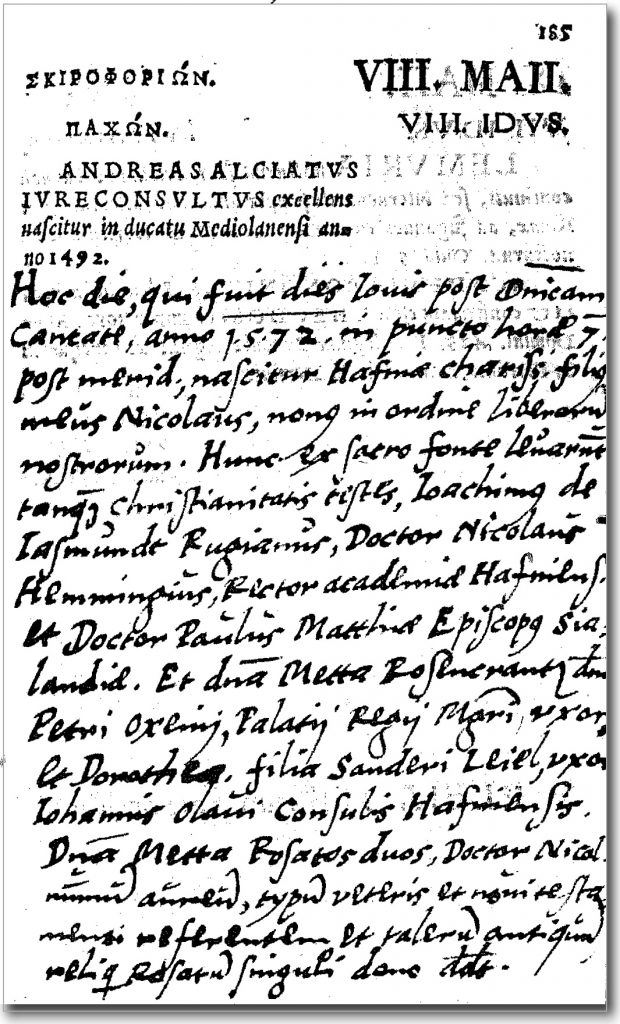 185
ΣΚΙΡΟΦΟΡΙΩ͂Ν. VIII. MAII.
ΠΑΧΩ͂Ν. VIII. IDVS.
ANDREAS ALCIATVS
IVRECONSVLTVS excellens
nascitur in ducatu Mediolanensi an-
no 1492.
Hoc die, qui fuit dies Iouis post Dnicam
Cantate, anno 1.5.72. in puncto horæ 7.
post merid., nascitur Hafniæ chariss. filiꝰ
meus Nicolaus, nonꝰ in ordine liberorū
nostrorum. Hunc ex sacro fonte leuarūt
tanqꝫ christianitatis testes, Ioachimꝰ de
Iasmundt Rugianus, Doctor Nicolaus
Hemmingius, Rector academiæ Hafniens.
et Doctor Paulus Matthiæ Episcopꝰ Sia-
landiæ. Et dnā Metta Rosencrantz dni
Petri Oxenij, Palatij Regij Mgri, vxor,
et Dorothea. filia Sanderi Leiel, vxor
Iohannis Olaui Consulis Hafniensis.
Dnā Metta Rosatos duos, Doctor Nicol.
numū aureū, typū veteris et noui testa
menti referentem et talerū antiquū
reliq Rosatū singuli dono ddt.